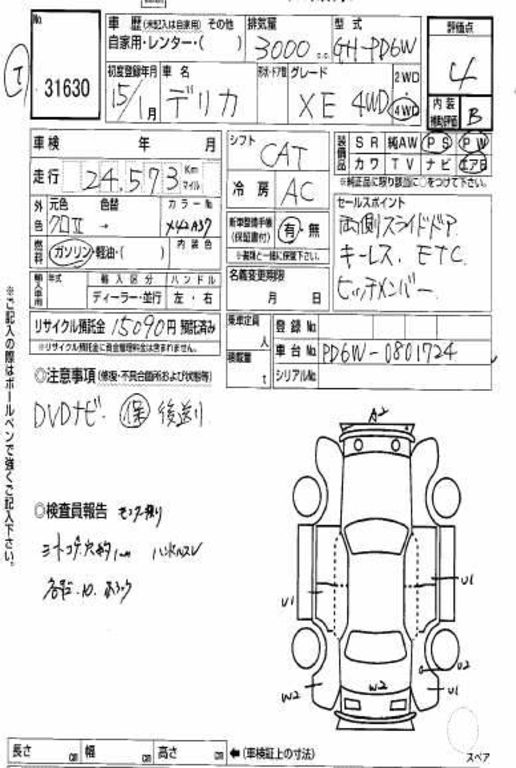 No.
31630
車歴 (未記入は自家用) その他
自家用・レンター・( )
排気量
3000 c.c.
型式
GH-PD6W
評価点
4
初度登録年月
15/1月
車名
デリカ
形状・ドア数
グレード
XE 4WD
2WD
・
4WD
内装
補助評価
B
車検 年 月
走行 24,573 Km
マイル
シフト
CAT
冷房
AC
装備品
SR 純AW PS PW
カワ TV ナビ エアB
※純正品に限り該当に○をつけて下さい。
外色
元色 色替 カラーNo.
クロII → X42A37
燃料
ガソリン・軽油・( )
内装色
新車整備手帳
(保証書付)
有・無
※書類と一緒に保管下さい。
セールスポイント
両側スライドドア
キーレス. ETC.
ヒッチメンバー.
輸入車用
年式 輸入区分 ハンドル
ディーラー・並行 左・右
名義変更期限
月 日
リサイクル預託金 15090円 預託済み
※リサイクル預託金に資金管理料金は含まれません。
乗車定員
人
積載量
t
登録No.
車台No. PD6W-0801724
シリアルNo.
◎注意事項 (修復・不具合箇所および状態等)
DVDナビ. 保 後送り
◎検査員報告
ハンドルスレ
A2
U1
U1
U2
W2
W2
U1
スペア
※ご記入の際はボールペンで強くご記入下さい。
長さ cm 幅 cm 高さ cm ←(車検証上の寸法)